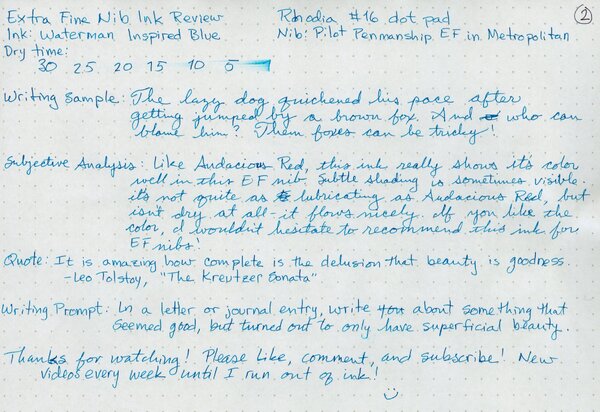 Extra Fine Nib Ink Review Rhodia #16 dot pad 2
Ink: Waterman Inspired Blue Nib: Pilot Penmanship EF in Metropolitan
Dry time:
30 25 20 15 10 5
Writing Sample: The lazy dog quickened his pace after
getting jumped by a brown fox. And who can
blame him? Them foxes can be tricky!
Subjective Analysis: Like Audacious Red, this ink really shows it's color
well in this EF nib. Subtle shading is sometimes visible.
it's not quite as lubricating as Audacious Red, but
isn't dry at all - it flows nicely. If you like the
color, I wouldn't hesitate to recommend this ink for
EF nibs!
Quote: It is amazing how complete is the delusion that beauty is goodness.
-Leo Tolstoy, "The Kreutzer Sonata"
Writing Prompt: In a letter or journal entry, write you about something that
seemed good, but turned out to only have superficial beauty.
Thanks for watching! Please like, comment, and subscribe! New
videos every week until I run out of ink!